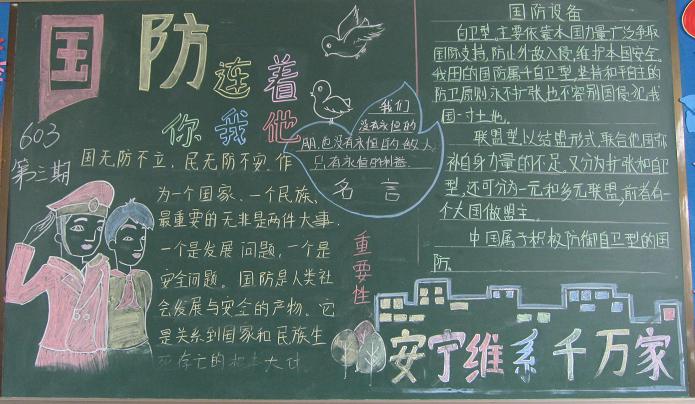 国防连着
你我他
603
第三期
国无防不立，民无防不安，作
为一个国家、一个民族，
最重要的无非是两件大事，
一个是发展问题，一个是
安全问题。国防是人类社
会发展与安全的产物。它
是关系到国家和民族生
死存亡的根本大计
重要性
我们
没有永恒的
朋，也没有永恒的敌人
只有永恒的利益
名言
国防设备
自卫型，主要依靠本国力量广泛争取
国际支持，防止外敌入侵，维护本国安全。
我国的国防属于自卫型，坚持和平自主的
防卫原则永不扩张也不容别国侵犯我
国一寸土地。
联盟型，以结盟形式，联合他国弥
补自身力量的不足，又分为扩张和自卫
型，还可分为一元和多元联盟，前者有一
个大国做盟主。
中国属于积极防御自卫型的国
防。
安宁维系千万家